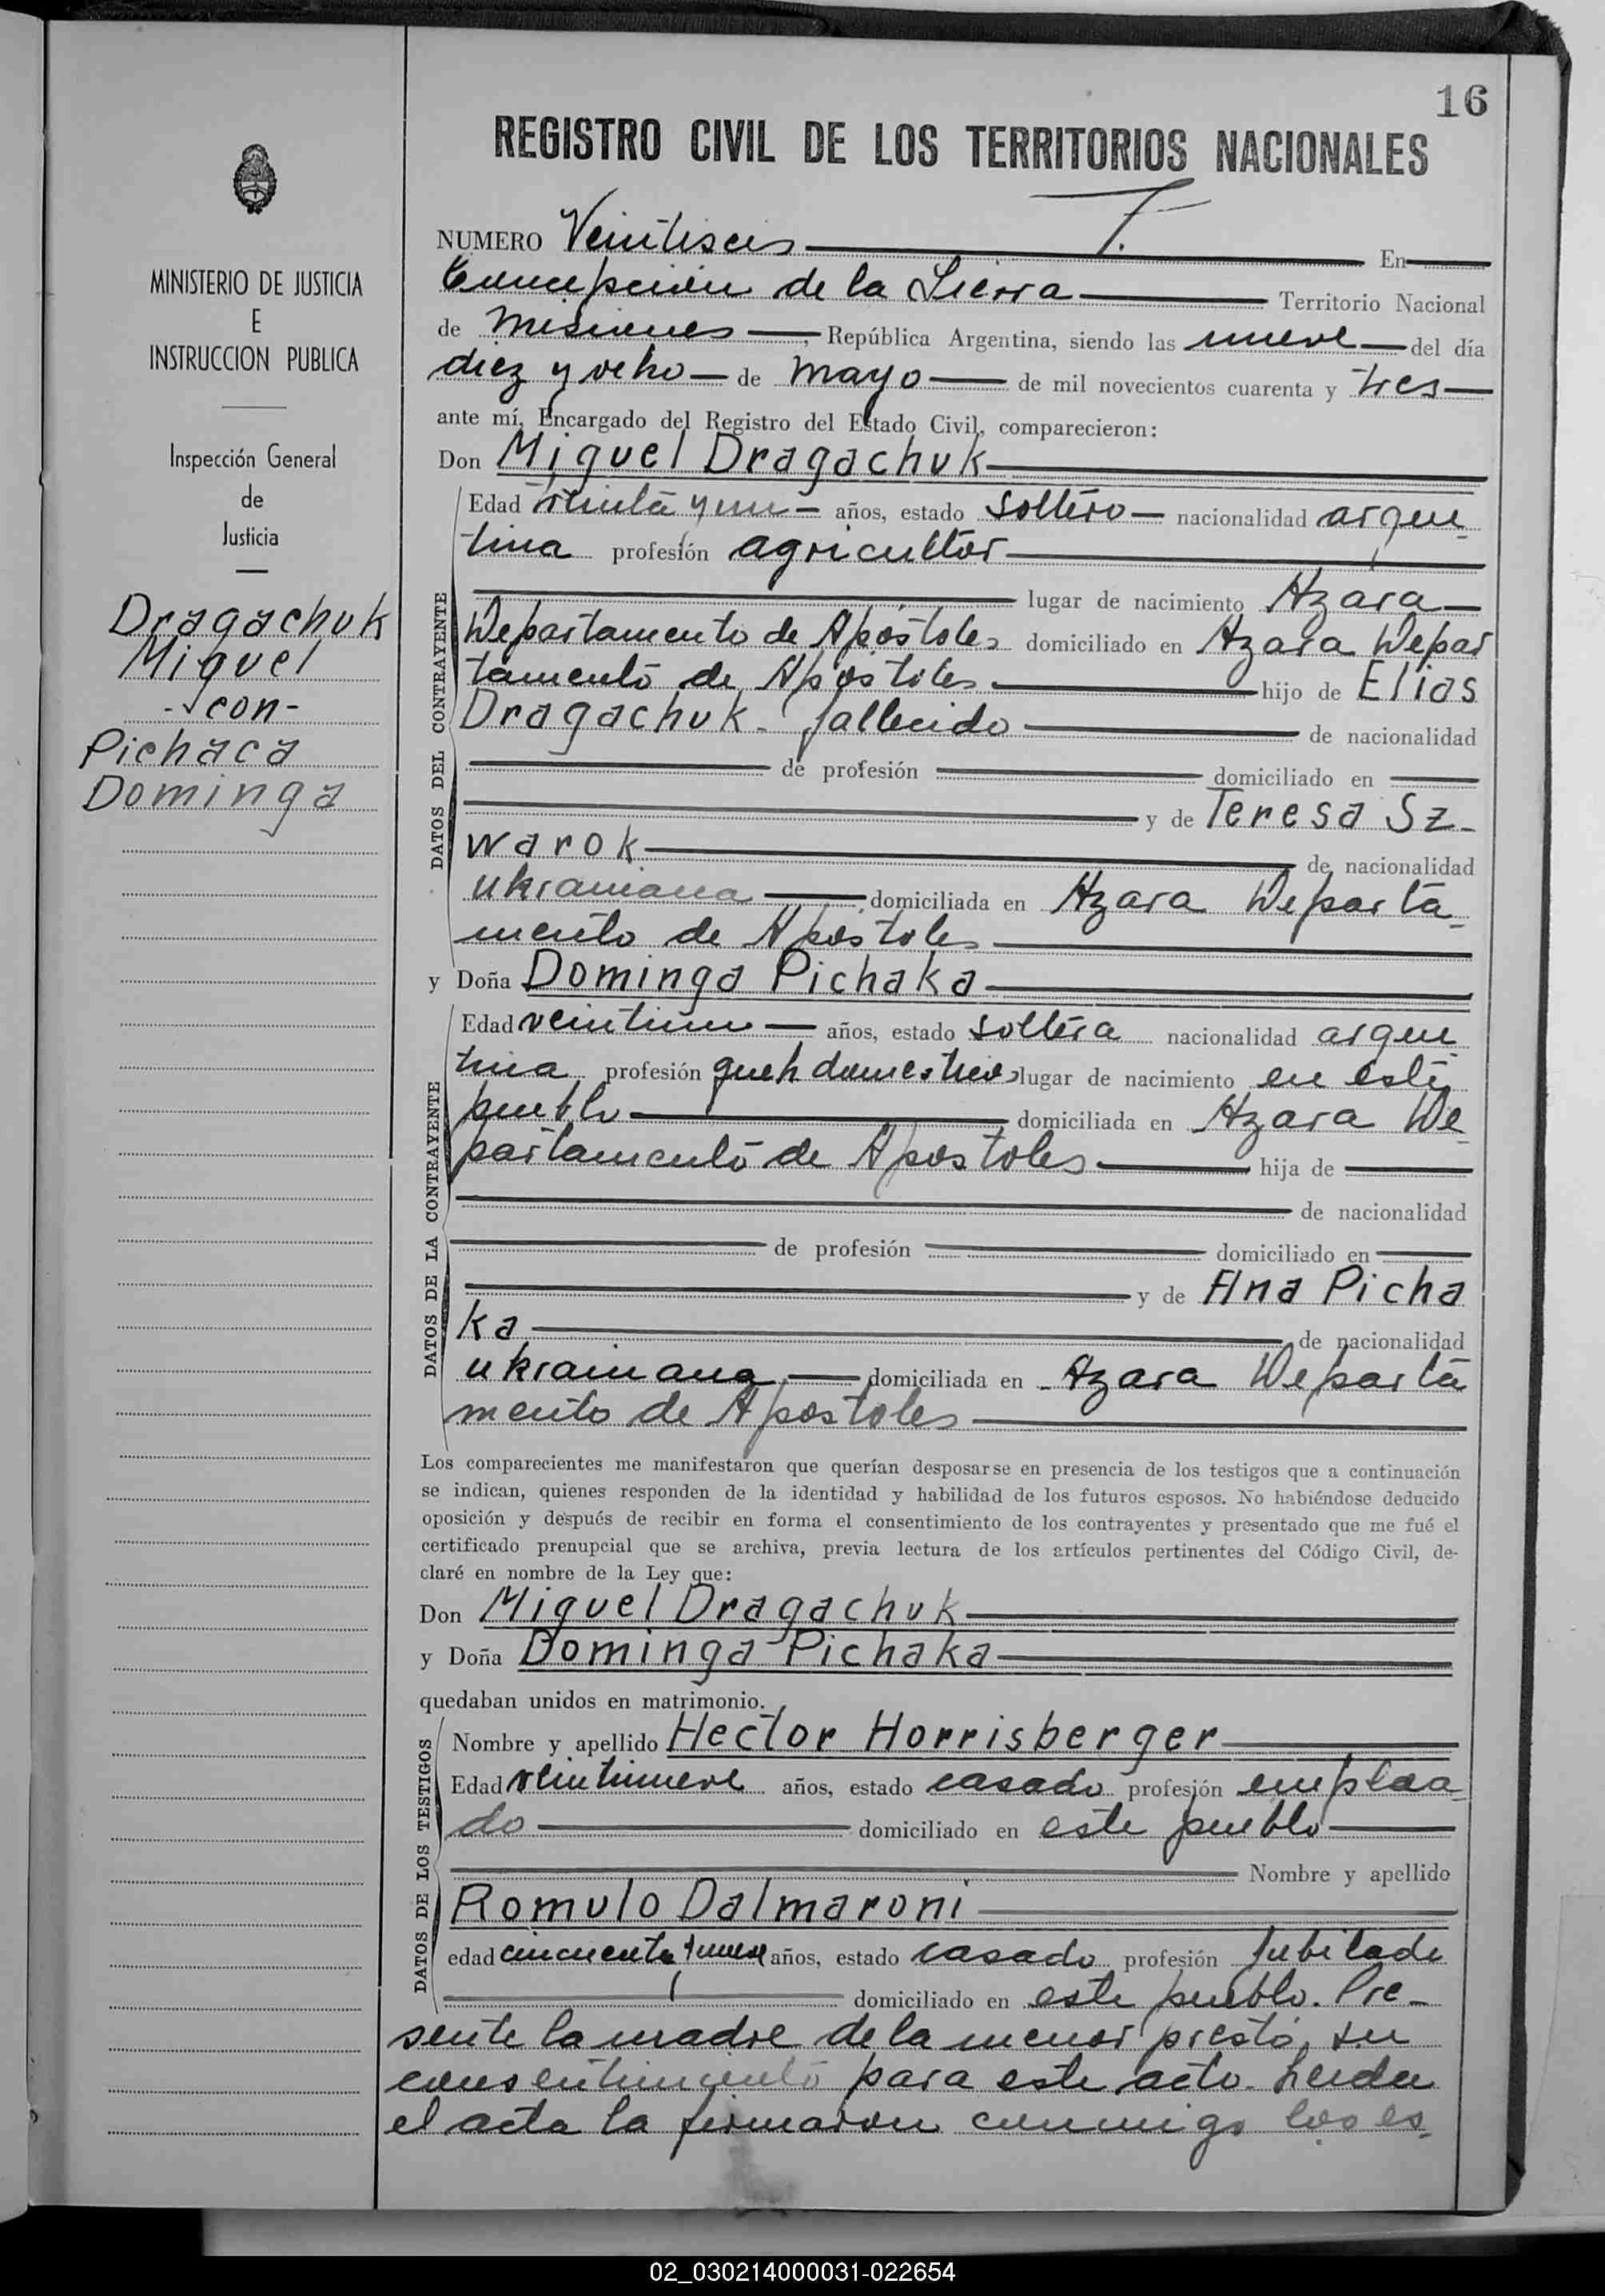 16
REGISTRO CIVIL DE LOS TERRITORIOS NACIONALES
MINISTERIO DE JUSTICIA
E
INSTRUCCION PUBLICA
Inspección General
de
Justicia
Dragachuk
Miguel
-con-
Pichaca
Dominga
NUMERO Veintiseis En
Concepción de la Sierra Territorio Nacional
de Misiones, República Argentina, siendo las nueve del día
diez y ocho de mayo de mil novecientos cuarenta y tres
ante mí, Encargado del Registro del Estado Civil, comparecieron:
Don Miguel Dragachuk
DATOS DEL CONTRAYENTE
Edad treinta y un años, estado soltero nacionalidad argen
tina profesión agricultor
lugar de nacimiento Azara
Departamento de Apóstoles domiciliado en Azara Depar
tamento de Apóstoles hijo de Elias
Dragachuk. fallecido de nacionalidad
de profesión domiciliado en
y de Teresa Sz-
warok de nacionalidad
ukraniana domiciliada en Azara Departa
mento de Apostoles
y Doña Dominga Pichaka
DATOS DE LA CONTRAYENTE
Edad veintiun años, estado soltera nacionalidad argen
tina profesión queh domesticos lugar de nacimiento en este
pueblo domiciliada en Azara De
partamento de Apostoles hija de
de nacionalidad
de profesión domiciliado en
y de Ana Picha
ka de nacionalidad
ukrainana domiciliada en Azara Departa
mento de Apostoles
Los comparecientes me manifestaron que querían desposarse en presencia de los testigos que a continuación
se indican, quienes responden de la identidad y habilidad de los futuros esposos. No habiéndose deducido
oposición y después de recibir en forma el consentimiento de los contrayentes y presentado que me fué el
certificado prenupcial que se archiva, previa lectura de los artículos pertinentes del Código Civil, de-
claré en nombre de la Ley que:
Don Miguel Dragachuk
y Doña Dominga Pichaka
quedaban unidos en matrimonio.
DATOS DE LOS TESTIGOS
Nombre y apellido Hector Horrisberger
Edad veintinueve años, estado casado profesión emplea
do domiciliado en este pueblo
Nombre y apellido
Romulo Dalmaroni
edad cincuenta y nueve años, estado casado profesión jubilado
domiciliado en este pueblo. Pre-
sente la madre de la menor prestó su
consentimiento para este acto. Leida
el acta la firmaron conmigo los es
02_030214000031-022654